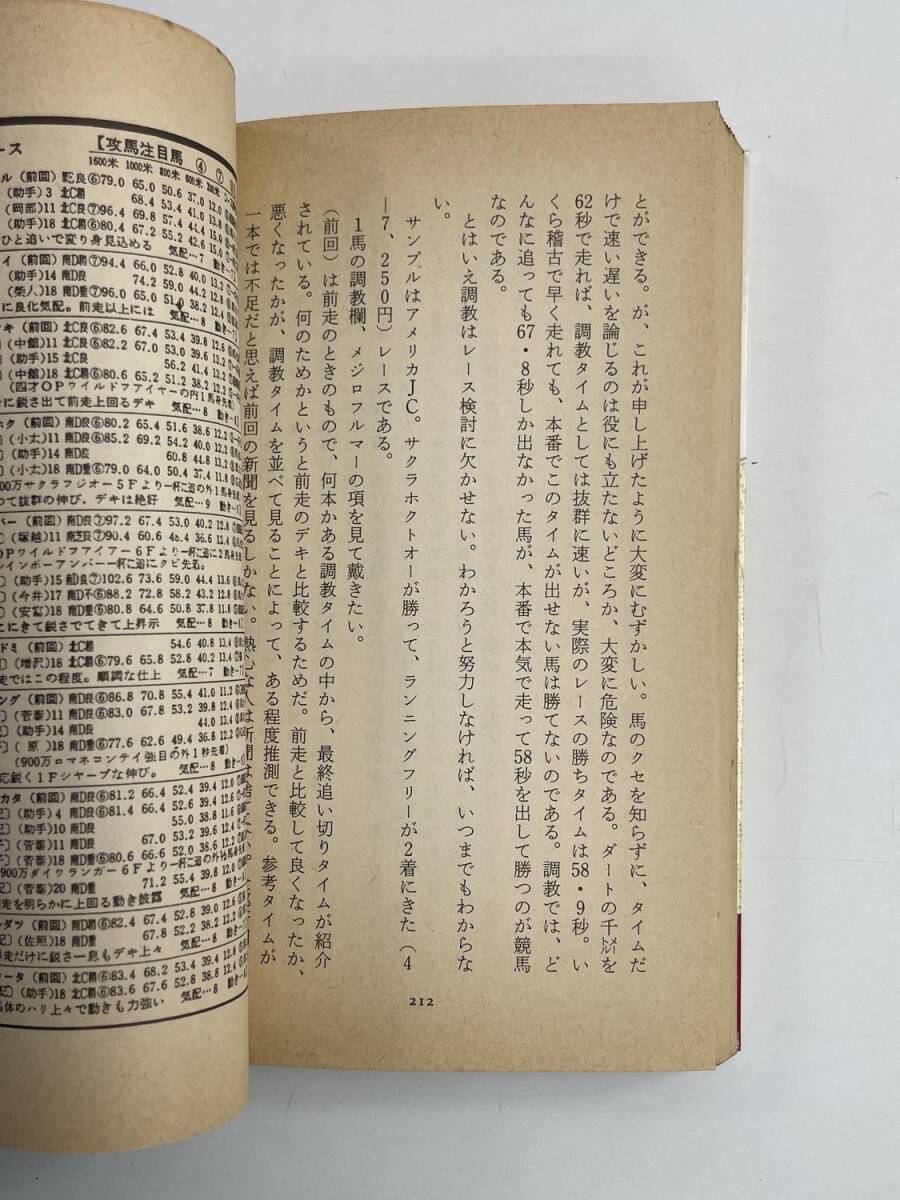 とができる。が、これが申し上げたように大変にむずかしい。馬のクセを知らずに、タイムだ
けで速い遅いを論じるのは役にも立たないどころか、大変に危険なのである。ダートの千㍍を
62秒で走れば、調教タイムとしては抜群に速いが、実際のレースの勝ちタイムは58・9秒。い
くら稽古で早く走れても、本番でこのタイムが出せない馬は勝てないのである。調教では、ど
んなに追っても67・8秒しか出なかった馬が、本番で本気で走って58秒を出して勝つのが競馬
なのである。
とはいえ調教はレース検討に欠かせない。わかろうと努力しなければ、いつまでもわからな
い。
サンプルはアメリカJC。サクラホクトオーが勝って、ランニングフリーが2着にきた（4
―7、250円）レースである。
1馬の調教欄、メジロフルマーの項を見て戴きたい。
（前回）は前走のときのもので、何本かある調教タイムの中から、最終追い切りタイムが紹介
されている。何のためかというと前走のデキと比較するためだ。前走と比較して良くなったか、
悪くなったか、調教タイムを並べて見ることによって、ある程度推測できる。参考タイムが
一本では不足だと思えば前回の新聞を見るしかない。熱心な人は新聞は
212
ース 【攻馬注目馬 ④ ⑦
1600米 1000米 800米 600米 200米
ル (前回) ⑥79.0 65.0 50.6 37.0 12.0
(助手) 3 北C 68.4 53.4 41.0 13.0
(岡部)11 北C良⑦96.4 69.8 57.4 44.4 15.0
(助手)18 ⑥80.4 67.2 55.2 42.6 15.0
ひと追いで変り身見込める 気配…7 動き…7
イ (前回) 南D ⑦94.4 66.0 52.8 40.0
(助手)14 南D良 74.2 59.0 44.2
(柴人)18 南D重⑦96.0 65.0 51.0 38.2 12.4
に良化気配。前走以上には 気配…8 動き…
キ (前回) 北C良⑥82.6 67.4 53.4 39.8 12.6
(中館)11 北C良⑥82.2 67.0 53.0 39.0 13.2
(助手)15 北C良 56.2 41.4 13.2
(中館)18 ⑥80.6 65.2 51.2 38.2 12.2
(四才OPワイルドファイヤーの内1馬身先着)
に鋭さ出て前走上回るデキ 気配…8
ホク (前回) 南D良⑥80.2 65.4 51.6 38.6 12.2
(小太)11 南D良⑥85.2 69.2 54.2 40.0 12.2
(助手)14 南D良 60.8 44.8 13.2
(小太)18 南D重⑥79.0 64.0 50.4 37.4 11.8
900万サクラフジオー5Fより一杯に追の外1馬身先着
って抜群の伸び、デキは絶好 気配…9
バー (前回) 南D良⑦97.2 67.4 53.0 40.2 12.8
(塚越)11 南芝良⑦90.4 65.4 52.2 39.4
OPワイルドファイアー6Fより一杯に追
レインボーアンバー一杯に追にクビ先着。
(助手)15 南D良⑦102.6 73.6 59.0 44.4 13.6
(今井)17 南D不⑥88.2 72.8 58.2 43.2 12.8
(安富)18 南D重⑥80.8 64.6 50.8 37.8
こにきて鋭さでてきて上昇示 気配…8
ドミ (前回) 54.6 40.8 13.4
(増沢)18 ⑥79.6 65.8 52.8 40.2 13.4
走ではこの程度。順調な仕上 気配…7 動き…7
ング (前回) 南D良⑥86.8 70.8 55.4 41.0 11.2
(菅泰)11 南D良⑥83.0 67.8 53.2 39.8
(助手)14 南D良 44.0 13.4
(原)18 南D重⑥77.6 62.6 49.4 36.8
(900万ロマネコンテイ強目の外1秒先着)
応鋭く1Fシャープな伸び。 気配…8
カタ (前回) 南D良⑥81.2 66.4 52.4 39.4 12.0
(助手)4 南D良⑥81.4 66.4 52.6 39.4 12.4
(助手)10 南D良 55.0 38.8 11.8
(菅泰)11 67.0 53.2 39.6 12.4
(菅泰)18 南D重⑥80.6 66.6 52.0 38.8 11.8
900万ダイワランガー6Fより一杯に追の外
(菅泰)20 南D重 71.2 55.4 39.4
走を明らかに上回る動き披露 気配…8 動き…
ダツ (前回) 南D稍⑥82.4 67.4 52.8 39.0
(佐照)18 南D重 67.8 52.2 38.2
走だけに鋭さ一息もデキ上々 気配…8
ータ (前回) 北C稍⑥83.4 68.2 53.4 39.4
(助手)18 北C稍⑥83.6 67.6 52.8 38.8
馬体のハリ上々で動きも力強い 気配…8